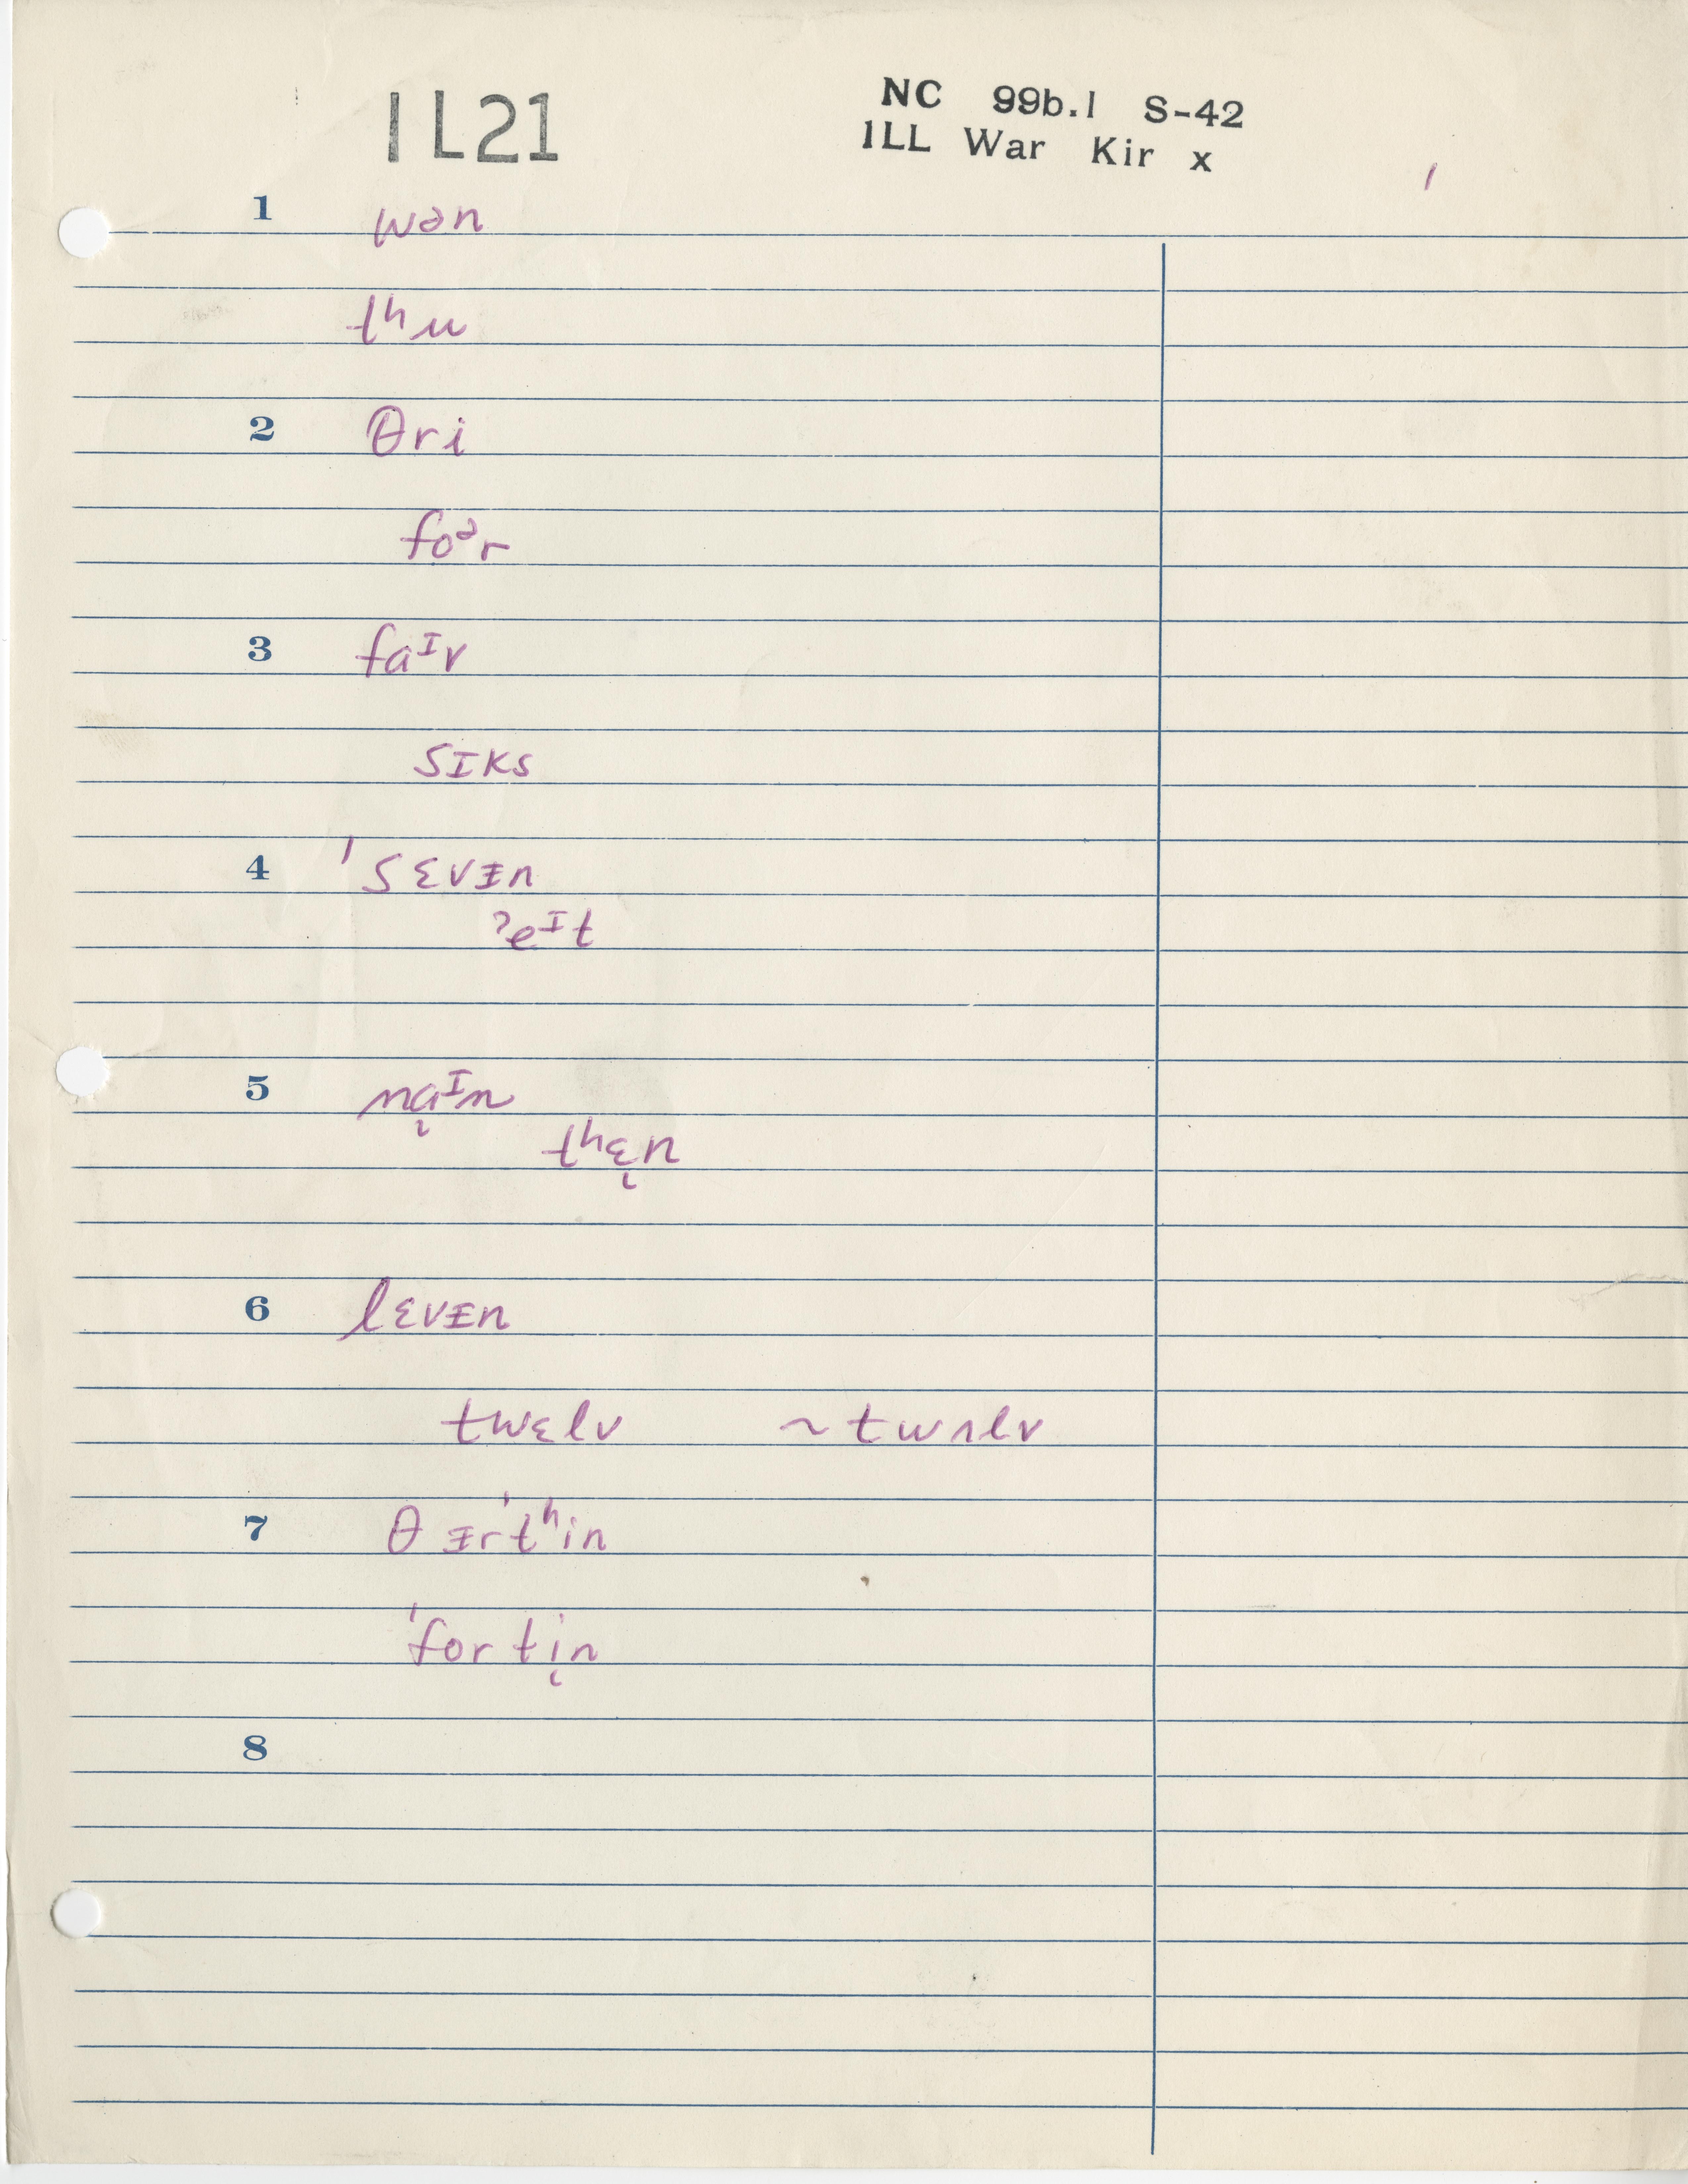 1L21
NC 99b.1 S-42
ILL War Kir x
1
1 wən
tʰu
2 θri
foᵊr
3 faᶦv
sɪks
4 ˈsɛvᵻn
ˀeᶦt
5 na̡ᶦn
tʰɛ̡n
6 lɛvᵻn
twɛlv ~ twʌlv
7 θᵻrˈtʰin
ˈforti̡n
8